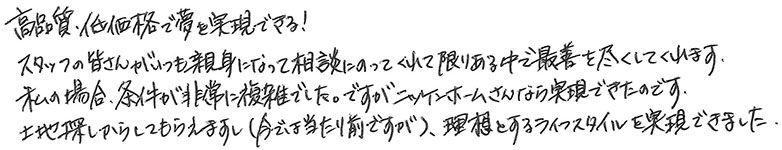 高品質、低価格で夢を実現できる！
スタッフの皆さんがいつも親身になって相談にのってくれて限りある中で最善を尽くしてくれます.
私の場合、条件が非常に複雑でした。ですがニッケンホームさんなら実現できたのです.
土地探しからしてもらえますし(今では当たり前ですが)、理想とするライフスタイルを実現できました.